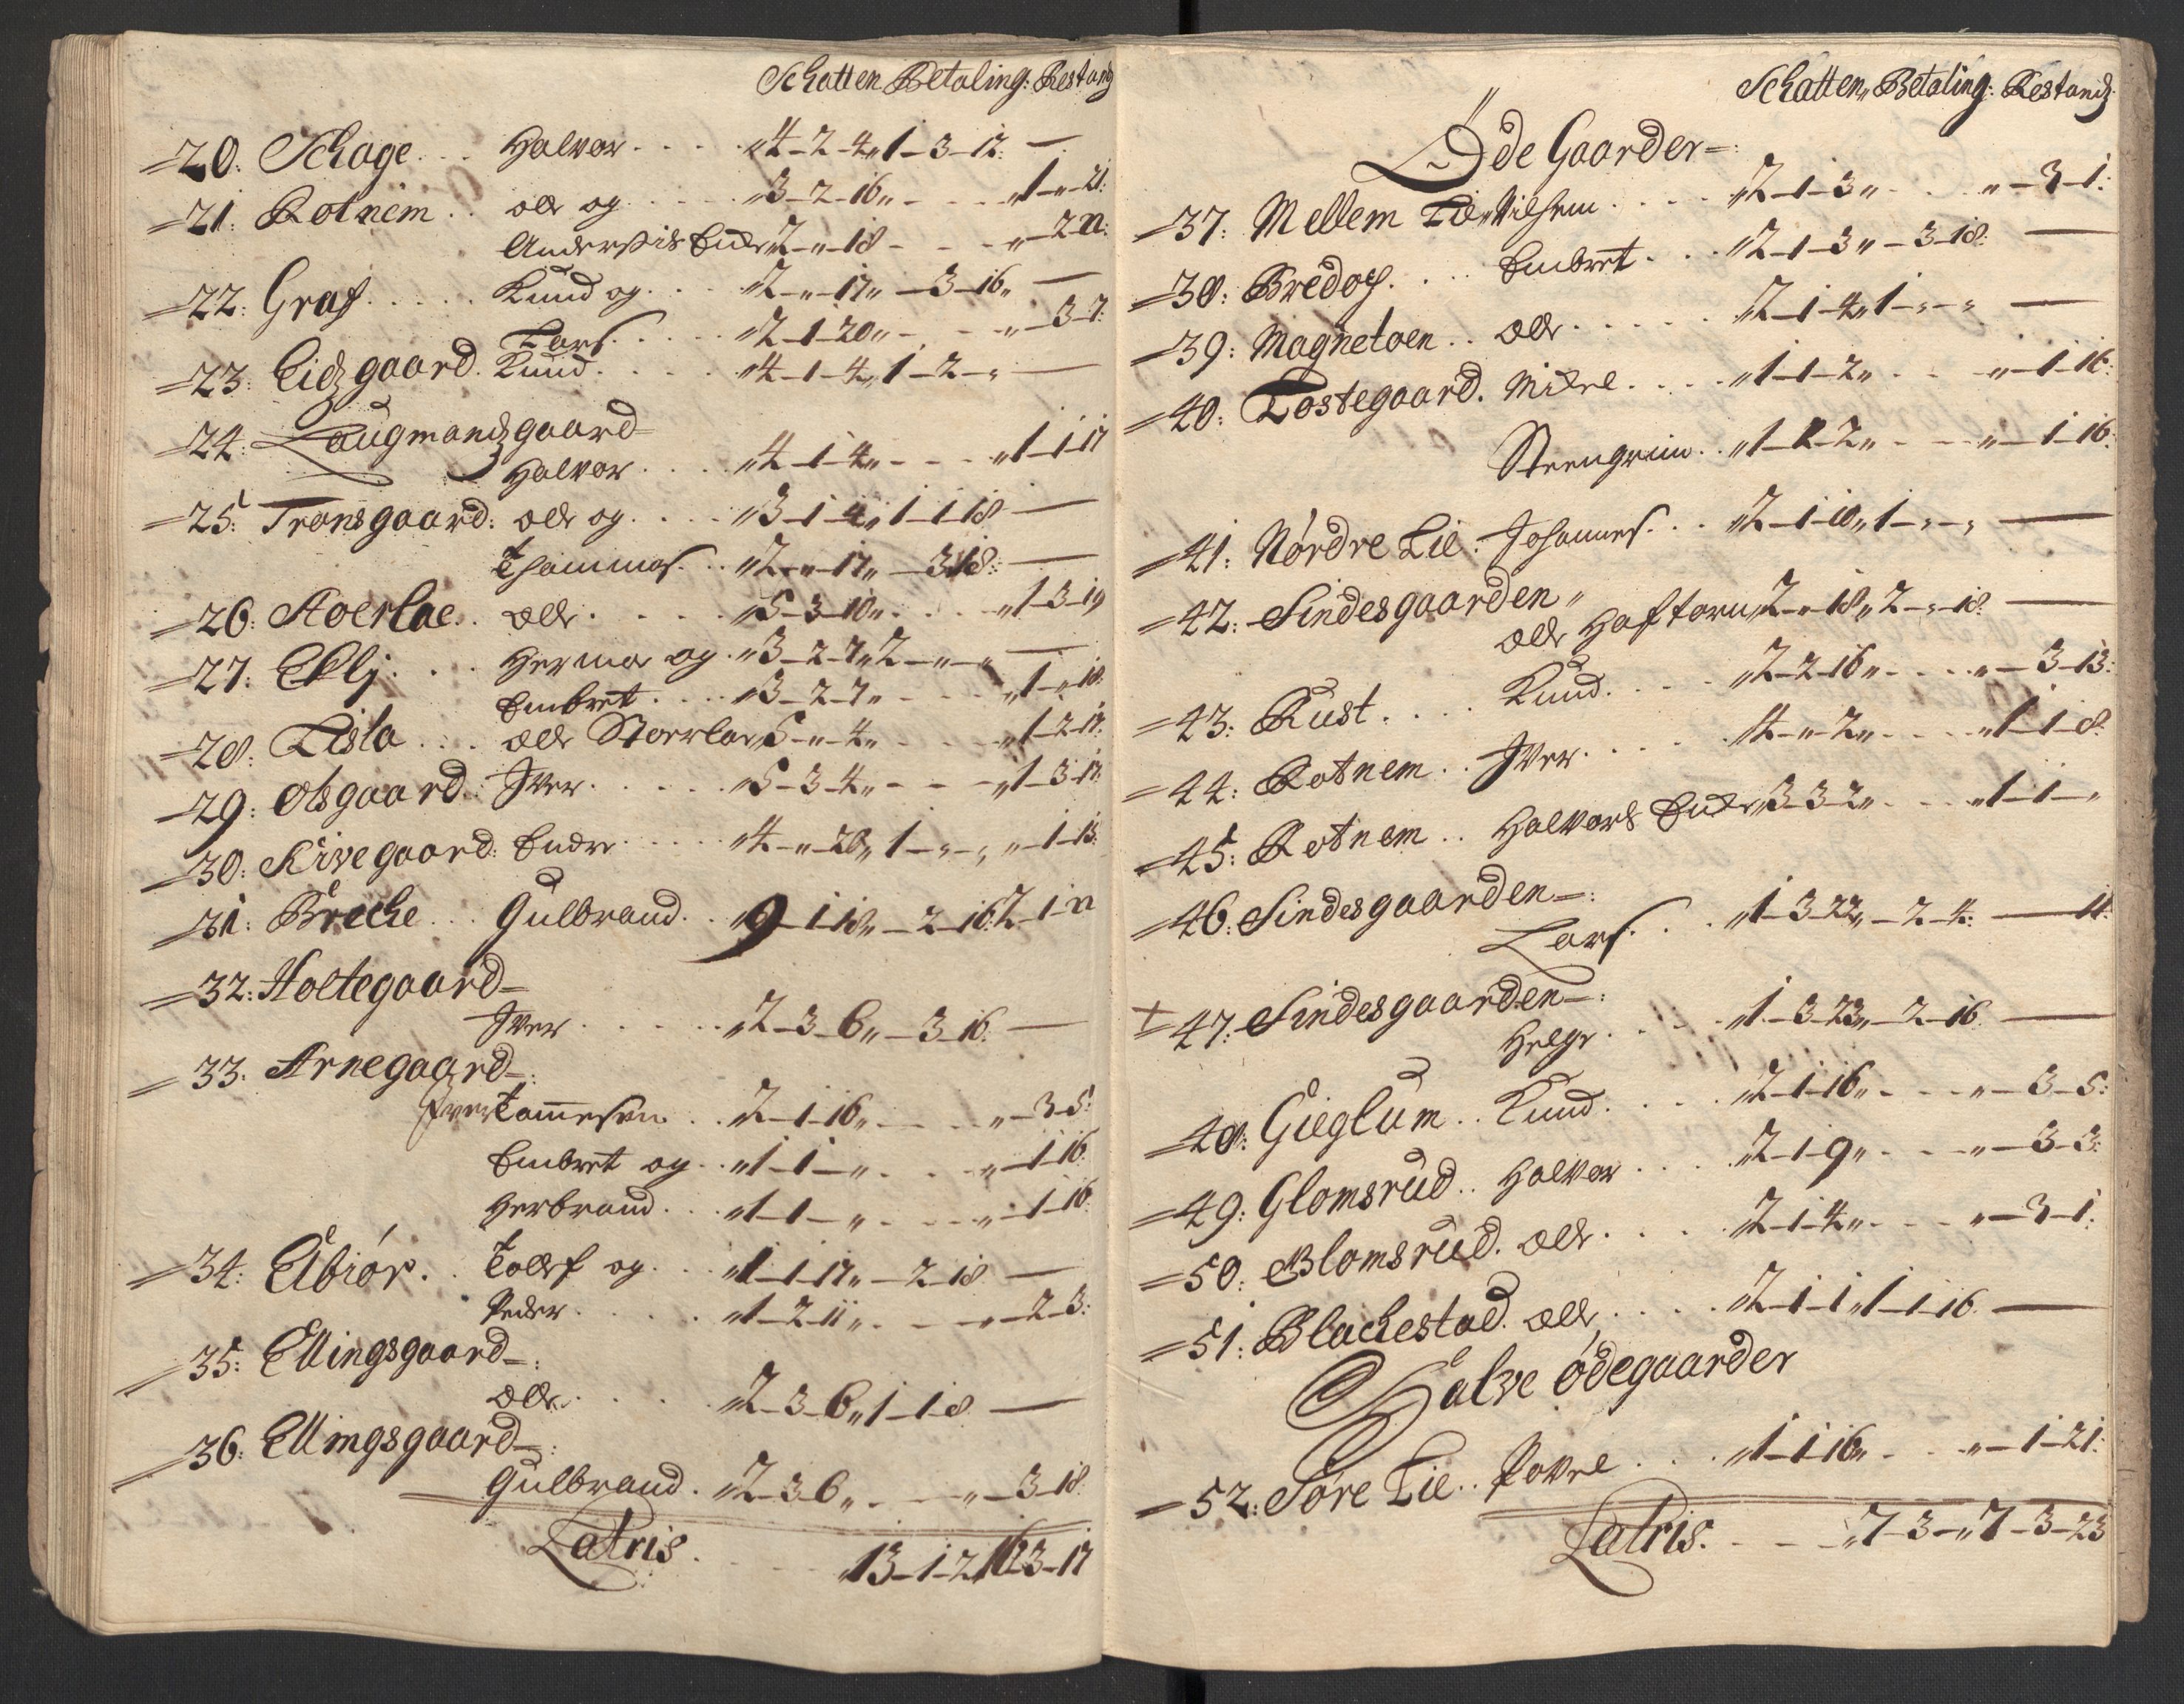 Schatten Betaling: Restand
=20: Schage... Halvor.... „4-2-4„1-3-12: —
=21: Rotnem.. olle og.... „3-2-16„ - - - „1-„-21:
Anders Enke „2-„-18 - - - „-2-11:
=22: Graf..... Knud og... „2-„-17„-3-16„ —
Lars..... „2-1-20„ - - - „-3-7:
=23: Eidzgaard. Knud..... „4-1-4„1-2-„ —
=24: Laugmandzgaard=
Halvor.... „4-1-4„ - - - „1-1-17
=25: Transgaard: olle og.... „3-1-4„1-1-18 —
Thommas... „2-„-17„-3-18: —
=26: Aoerlae.. olle..... „5-3-10„.... „1-3-19
=27: Eklj... Hermo og. „3-2-7„2-„-„ —
Embret.... „3-2-7„ - - - „1-„-18:
=28: Lisla.... olle Storrlar „5-„-4„ - - - „1-2-17:
=29: olsgaard.. Iver..... „5-3-4„ - - - „1-3-17:
=30: Kirvegaard: Endre..... „4-„-20„1-„-„ „-1-13:
=31: Breche... Gulbrand.. „9-1-18„-2-16:2-1-11
=32: Holtegaard=
Iver...... „2-3-6„-3-16: —
=33: Arnegaard=:
Iver Tommesen.. „2-1-16„ - - - „-3-5:
Embret og.. „1-1-„ . . . „-1-16:
Herbrand... „1-1-„ . - - - „-1-16:
=34: Elbiør.. Tollef og... „1-1-17„-2-18 —
Peder..... „1-2-11„. - - „-2-3:
=35: Ellingsgaard=:
olle..... „2-3-6„1-1-8 —
=36: Ellingsgaard=:
Gulbrand. „2-3-6„ . - - „-3-18:
Latris. - - - „13-1-2„16„3-17
Schatten„ Betaling: Restandz
Øde Gaarder=:
=37: Mellem Lie„ Vilhem.... „2-1-3„ . . . „-3-1:
=38: Bredog.... Embret... „2-1-3„-3-18: —
=39: Magnetoen.. olle..... „2-1-4„1-„-„ —
=40: Tostegaard. Mikel.... „1-1-2„ . . . „-1-16:
Steengrim.. „1-1-2„ - - - „-1-16:
=41: Nørdre Lie: Johannes... „2-1-10„1-„-„ —
=42: Sindesgaarden„
olle Haftorn „2-„-18„2-„-18: —
=43: Rust.... Knud..... „2-2-16„ - - - „-3-13:
=44: Rotnem.. Iver..... „4-„-2„ - - - „1-1-8:
=45: Rotnem.. Halvors Enke „3-3-2„ - - - „1-1-„
=46: Sindesgaarden=:
Lars... „1-3-22„-2-4: — 11:
+=47: Sindesgaarden=:
Helge.... „1-3-23„-2-16: —
=48: Gieglum.. Knud.... „2-1-16„ - - - „-3-5:
=49: Glomsrud.. Halvor... „2-1-9„ - - - „-3-3:
=50: Blomsrud. olle.... „2-1-4„ - - - „-3-1:
=51: Blachestad. olle,.... „2-1-1„1-1-16. —
Halve ødegaarder
=52: Søre Lie.. Povel... „1-1-16„ - - - „-1-21:
Latris. - - - „7-3-„7-3-23